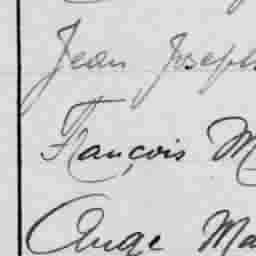 Jean Joseph
François M
Ange Ma